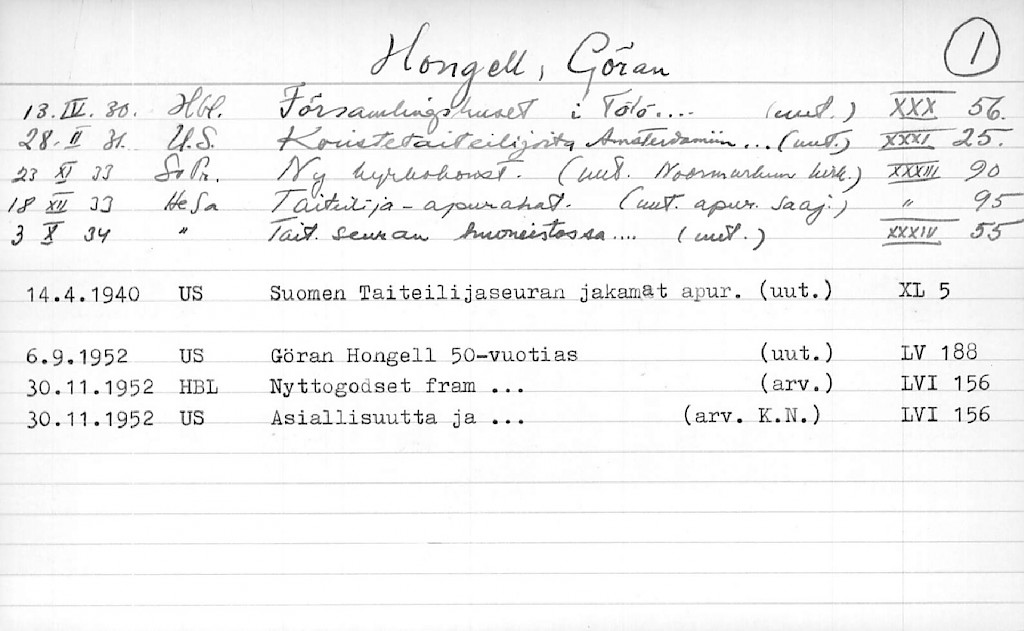 Hongell, Göran 1
13. IV. 30. Hbl. Församlingshuset i Tölö.... (uut.) XXX 56.
28. II 31. U.S. Koristetaiteilijoita Amsterdamiin... (uut.) XXXI 25.
23 XI 33 Sv Pr. Ny kyrkokonst. (uut. Noormarkun kirk.) XXXIII 90
18 XII 33 HeSa Taiteilija-apurahat. (uut. apur. saaj.) " 95
3 X 34 " Tait. seuran huoneistossa.... (uut.) XXXIV 55
14.4.1940 US Suomen Taiteilijaseuran jakamat apur. (uut.) XL 5
6.9.1952 US Göran Hongell 50-vuotias (uut.) LV 188
30.11.1952 HBL Nyttogodset fram ... (arv.) LVI 156
30.11.1952 US Asiallisuutta ja ... (arv. K.N.) LVI 156